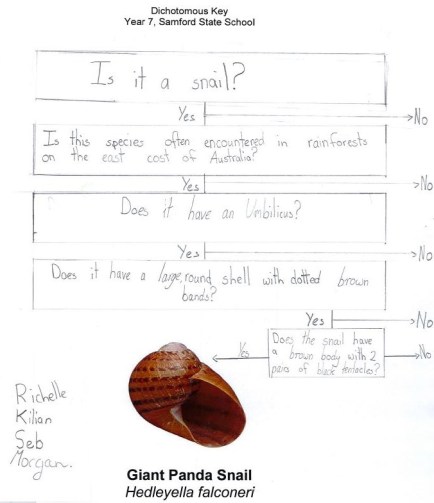 Dichotomous Key
Year 7, Samford State School
Is it a snail?
Yes No
Is this species often encountered in rainforests
on the east cost of Australia?
Yes No
Does it have an Umbilicus?
Yes No
Does it have a large, round shell with dotted brown
bands?
Yes No
Does the snail have
a brown body with 2
pairs of black tentacles?
Yes No
Richelle
Kilian
Seb
Morgan.
Giant Panda Snail
Hedleyella falconeri